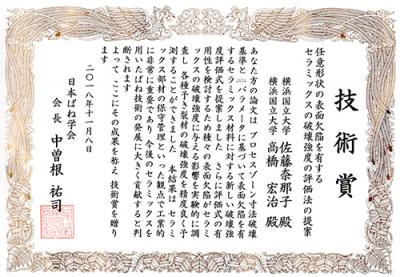 技術賞
任意形状の表面欠陥を有する
セラミックスの破壊強度の評価法の提案
横浜国立大学 佐藤奈那子 殿
横浜国立大学 高橋 宏治 殿
あなた方の論文は プロセスゾーン寸法破壊
基準と パラメータに基づいて表面欠陥を有
するセラミックス材料に対する新しい破壊強
度評価式を提案しました さらに評価式の有
用性を検討するため種々の表面欠陥がセラミ
ックスの破壊強度に与える影響を実験的に調
査し 各種予き裂材の破壊強度を精度良く予
測することができました 本結果は セラミ
ックス部材の保守管理といった観点で工業的
に非常に重要であり 今後のセラミックスを
用いたばね技術の発展に大きく貢献すると判
断されます
よって ここにその成果を称え 技術賞を贈り
ます
二〇一八年十一月八日
日本ばね学会
会長 中曽根 祐司